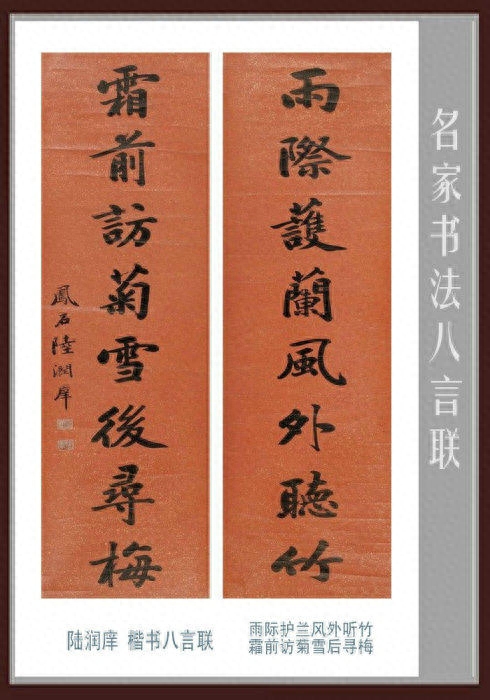 名家书法八言联
雨際護蘭風外聽竹
霜前訪菊雪後尋梅
鳳石陸潤庠
陆润庠 楷书八言联
雨际护兰风外听竹
霜前访菊雪后寻梅